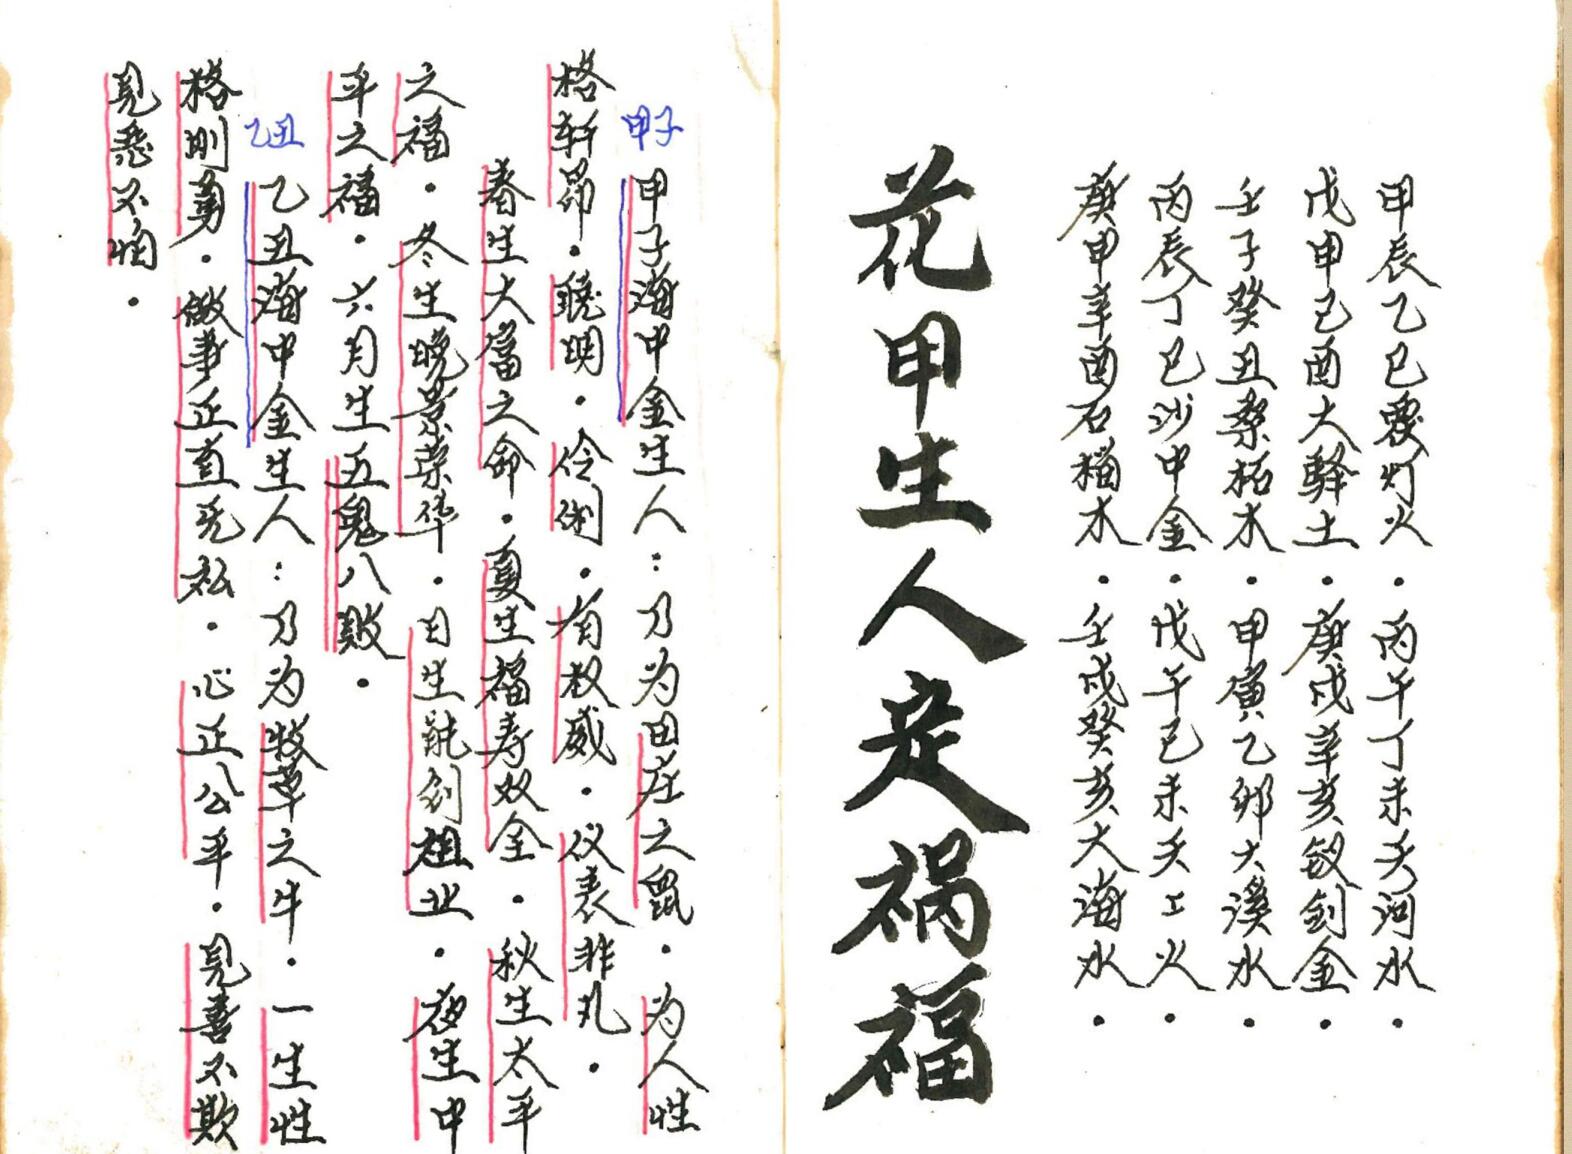 甲辰乙巳覆灯火・丙午丁未天河水・
戊申己酉大驿土・庚戌辛亥钗钏金・
壬子癸丑桑柘木・甲寅乙卯大溪水・
丙辰丁巳沙中金・戊午己未天上火・
庚申辛酉石榴木・壬戌癸亥大海水・
花甲生人定祸福
甲子
甲子海中金生人：乃为田庄之鼠・为人性
格轩昂・聪明・伶俐・有权威・仪表非凡・
春生大富之命・夏生福寿双全・秋生太平
之福・冬生晚景荣华・日生能创祖业・夜生中
平之福・六月生五鬼八败・
乙丑
乙丑海中金生人：乃为牧草之牛・一生性
格刚勇・做事正直无私・心正公平・见善不欺
见恶不怕・